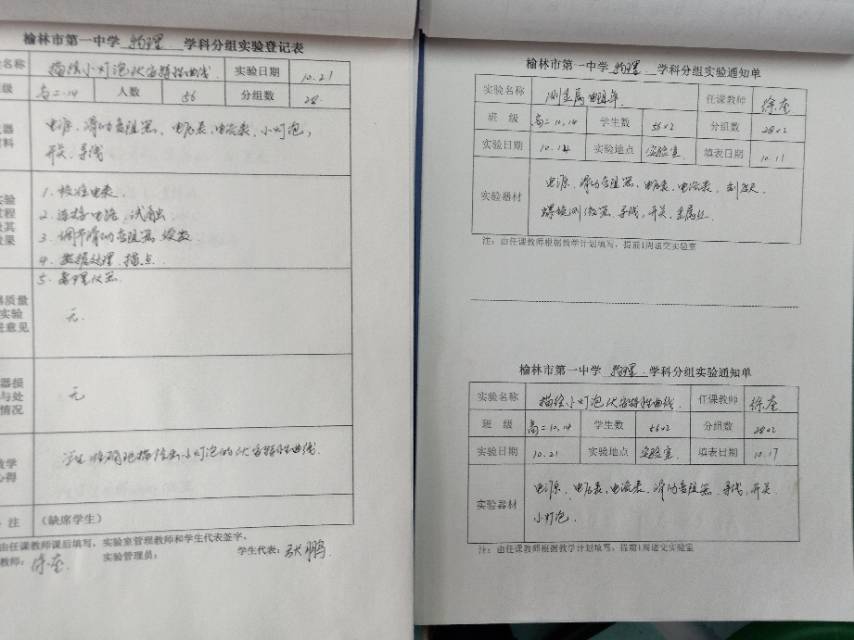 榆林市第一中学 物理 学科分组实验登记表
名称 描绘小灯泡伏安特性曲线. 实验日期 10.21
级 高二.14 人数 56 分组数 28
器 电源、滑动变阻器、电压表、电流表、小灯泡,
材料 开关、导线.
实验 1. 校准电表.
过程 2. 连接电路, 试触
及其 3. 调节滑动变阻器, 读数
效果 4. 数据处理、描点.
5. 整理仪器
质量
实验 无.
意见
器损
与处 无
情况
教学 学生准确地描绘出小灯泡的伏安特性曲线.
心得
注 (缺席学生)
由任课教师课后填写, 实验室管理教师和学生代表签字。
教师: 实验管理员: 学生代表: 张鹏
榆林市第一中学 物理 学科分组实验通知单
实验名称 测金属电阻率. 任课教师
班 级 高二10.14 学生数 56×2 分组数 28×2
实验日期 10.14 实验地点 实验室 填表日期 10.11
实验器材 电源、滑动变阻器、电压表、电流表、刻度尺
螺旋测微器、导线、开关、金属丝.
注: 由任课教师根据教学计划填写, 提前1周递交实验室
榆林市第一中学 物理 学科分组实验通知单
实验名称 描绘小灯泡伏安特性曲线. 任课教师
班 级 高二10.14 学生数 56×2 分组数 28×2
实验日期 10.21 实验地点 实验室 填表日期 10.17
实验器材 电源、电压表、电流表、滑动变阻器、导线、开关
小灯泡.
注: 由任课教师根据教学计划填写, 提前1周递交实验室